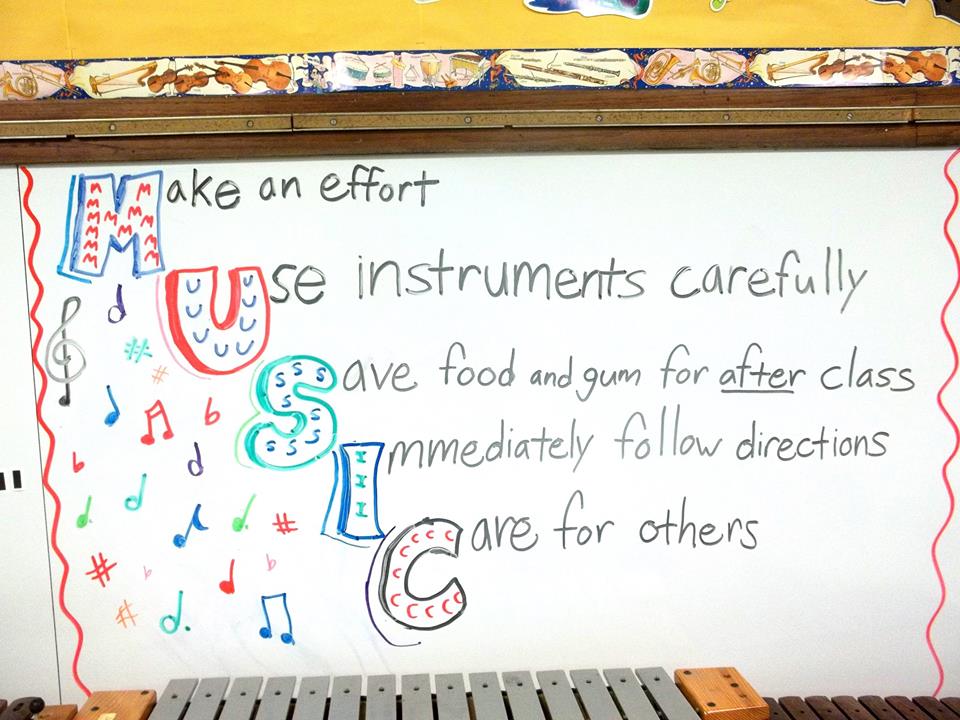 Make an effort
Use instruments carefully
Save food and gum for after class
Immediately follow directions
Care for others